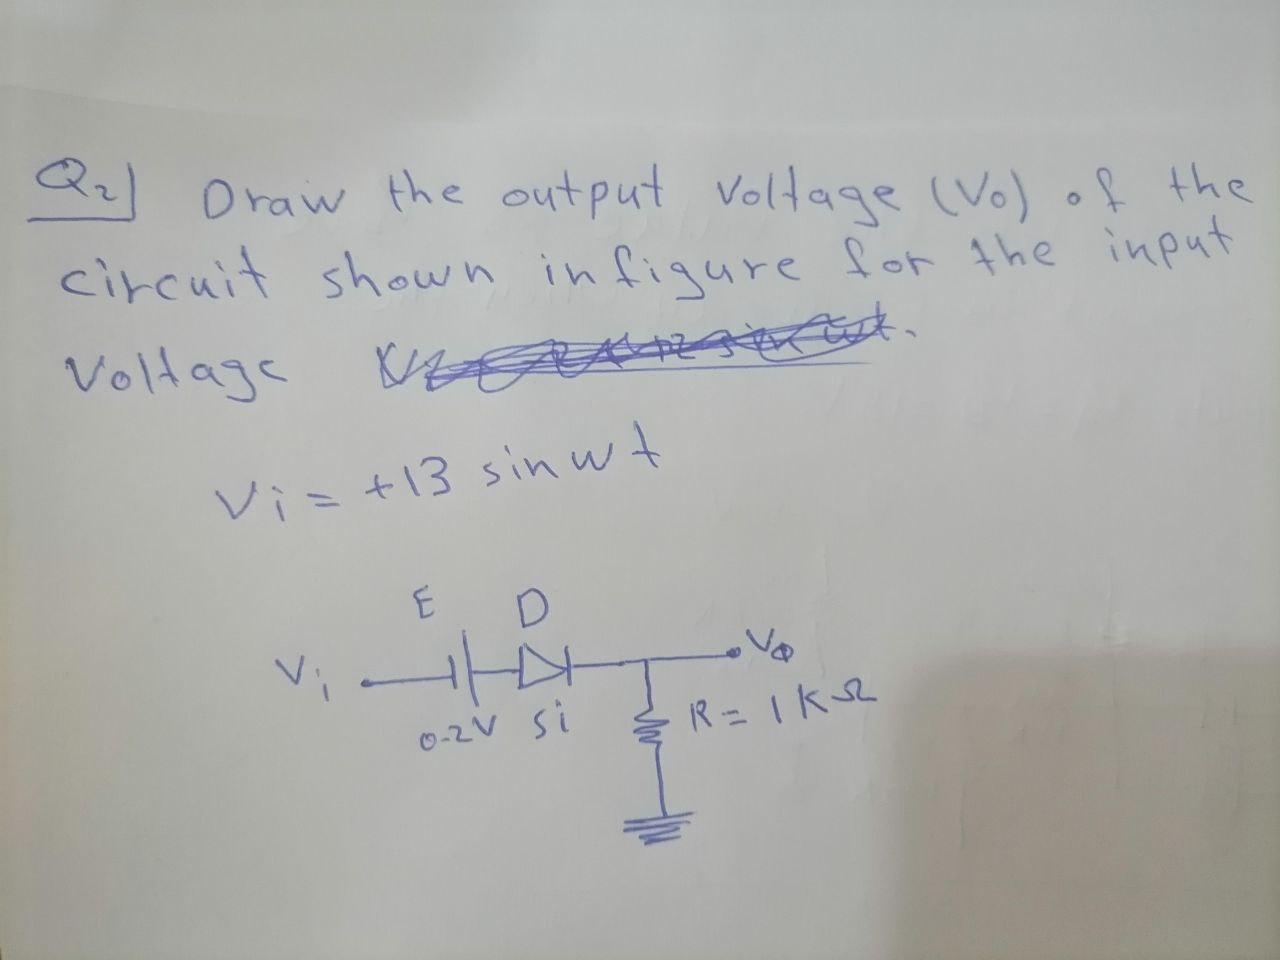 Q2] Draw the output Voltage (Vo) of the
circuit shown in figure for the input
Voltage
Vi = +13 sin wt
E D
Vi Vo
0.2V Si R = 1KΩ